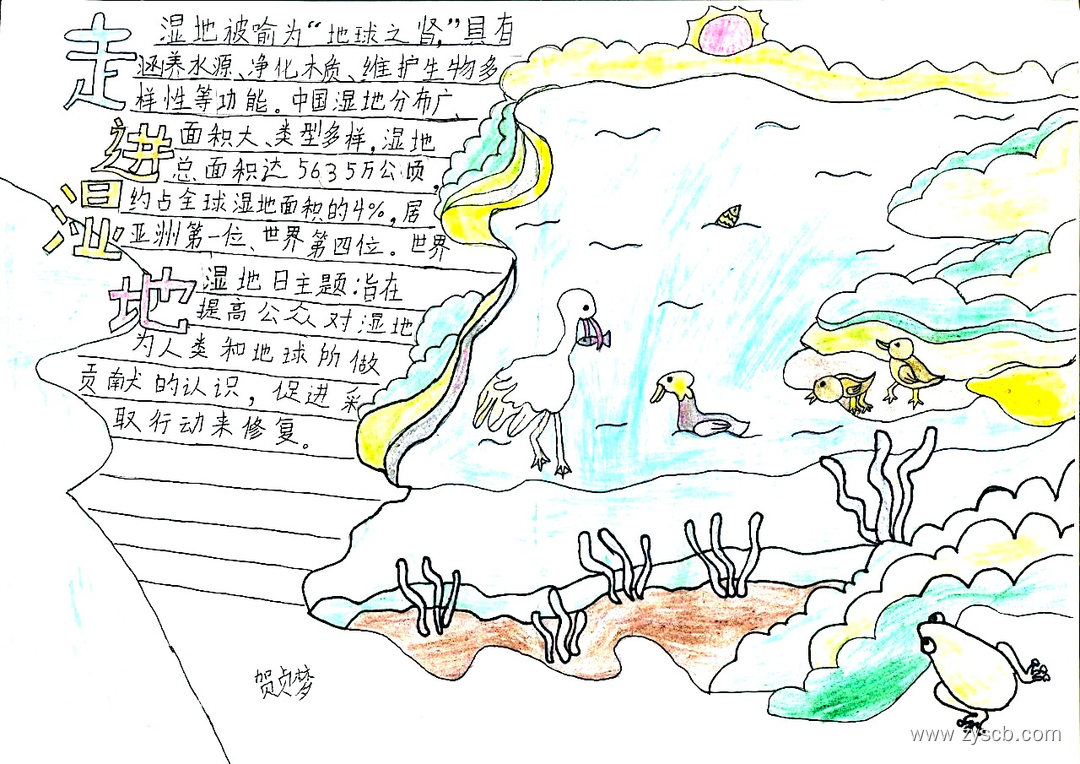 走进湿地
湿地被喻为“地球之肾,”具有
涵养水源、净化木质、维护生物多
样性等功能。中国湿地分布广、
面积大、类型多样,湿地
总面积达5635万公顷,
约占全球湿地面积的4%,居
亚洲第一位、世界第四位。世界
湿地日主题:旨在
提高公众对湿地
为人类和地球所做
贡献的认识,促进采
取行动来修复。
贺贞梦
www.zyscb.com